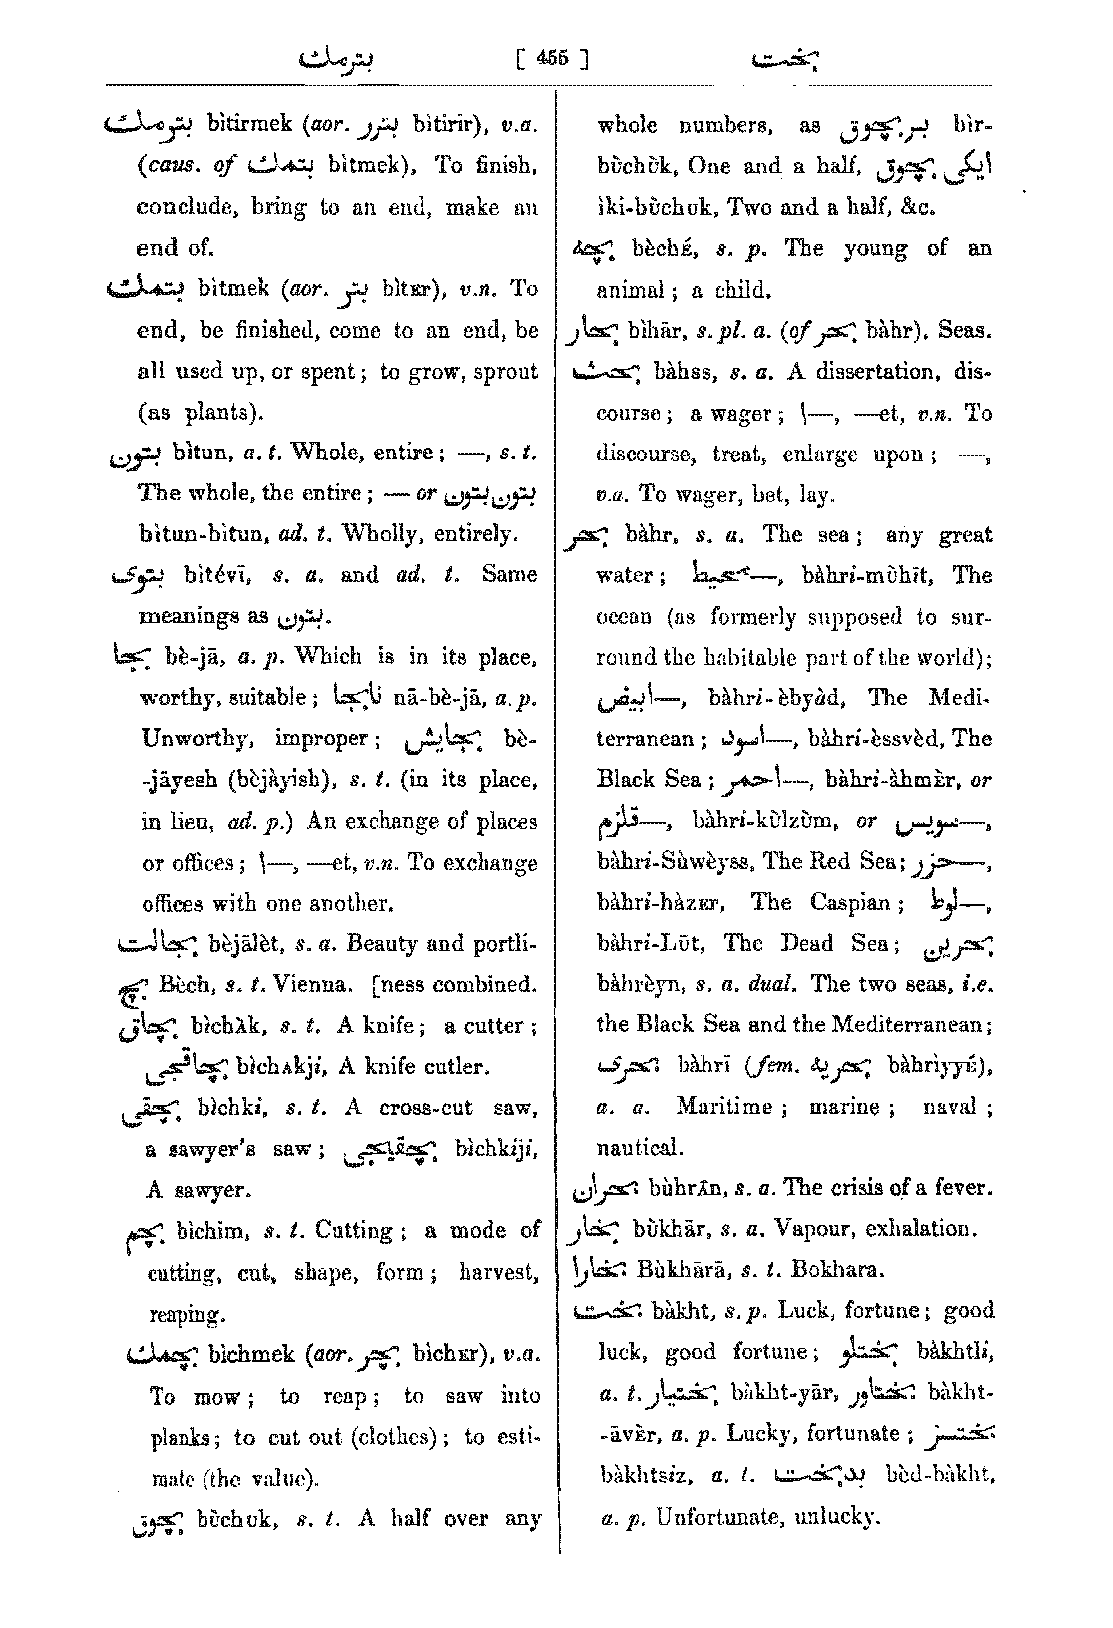 بترمك [ 455 ] بخت
بترمك bìtirmek (aor. بترر bìtirir), v.a.
(caus. of بتمك bìtmek), To finish,
conclude, bring to an end, make an
end of.
بتمك bìtmek (aor. بتر bìtᴇr), v.n. To
end, be finished, come to an end, be
all used up, or spent; to grow, sprout
(as plants).
بتون bìtun, a. t. Whole, entire; —, s. t.
The whole, the entire; — or بتون بتون
bìtun-bìtun, ad. t. Wholly, entirely.
بتوی bìtévī, s. a. and ad. t. Same
meanings as بتون.
بجا bè-jā, a. p. Which is in its place,
worthy, suitable; نابجا nā-bè-jā, a. p.
Unworthy, improper; بجایش bè-
-jāyesh (bèjàyish), s. t. (in its place,
in lieu, ad. p.) An exchange of places
or offices; \—, —et, v.n. To exchange
offices with one another.
بجالت bèjālèt, s. a. Beauty and portli-
بچ Bèch, s. t. Vienna. [ness combined.
بچاق bìchᴀk, s. t. A knife; a cutter;
بچاقجی bìchᴀkji, A knife cutler.
بچقی bìchki, s. t. A cross-cut saw,
a sawyer's saw; بچقیجی bìchkiji,
A sawyer.
بچم bìchim, s. t. Cutting; a mode of
cutting, cut, shape, form; harvest,
reaping.
بچمك bìchmek (aor. بچر bìchᴇr), v.a.
To mow; to reap; to saw into
planks; to cut out (clothes); to esti-
mate (the value).
بچوق bùchuk, s. t. A half over any
whole numbers, as بر بچوق bìr-
bùchùk, One and a half, ایکی بچوق
ìki-bùchuk, Two and a half, &c.
بچه bèchÉ, s. p. The young of an
animal; a child.
بحار bìhār, s. pl. a. (of بحر bàhr), Seas.
بحث bàhss, s. a. A dissertation, dis-
course; a wager; \—, —et, v.n. To
discourse, treat, enlarge upon; —,
v.a. To wager, bet, lay.
بحر bàhr, s. a. The sea; any great
water; —محیط, bàhri-mùhīt, The
ocean (as formerly supposed to sur-
round the habitable part of the world);
—ابیض, bàhri-èbyàd, The Medi-
terranean; —اسود, bàhri-èssvèd, The
Black Sea; —احمر, bàhri-àhmᴇ̀r, or
—قلزم, bàhri-kùlzùm, or —سویس,
bàhri-Sùwèyss, The Red Sea; —خزر,
bàhri-hàzᴇr, The Caspian; —لوط,
bàhri-Lūt, The Dead Sea; بحرین
bàhrèyn, s. a. dual. The two seas, i.e.
the Black Sea and the Mediterranean;
بحری bàhrī (fem. بحریه bàhrìyyÉ),
a. a. Maritime; marine; naval;
nautical.
بحران bùhrĀn, s. a. The crisis of a fever.
بخار bùkhār, s. a. Vapour, exhalation.
بخارا Bùkhārā, s. t. Bokhara.
بخت bàkht, s. p. Luck, fortune; good
luck, good fortune; بختلو bàkhtli,
a. t. بختیار bàkht-yār, بختاور bàkht-
-āvᴇ̀r, a. p. Lucky, fortunate; بختسز
bàkhtsiz, a. t. بدبخت bèd-bàkht,
a. p. Unfortunate, unlucky.